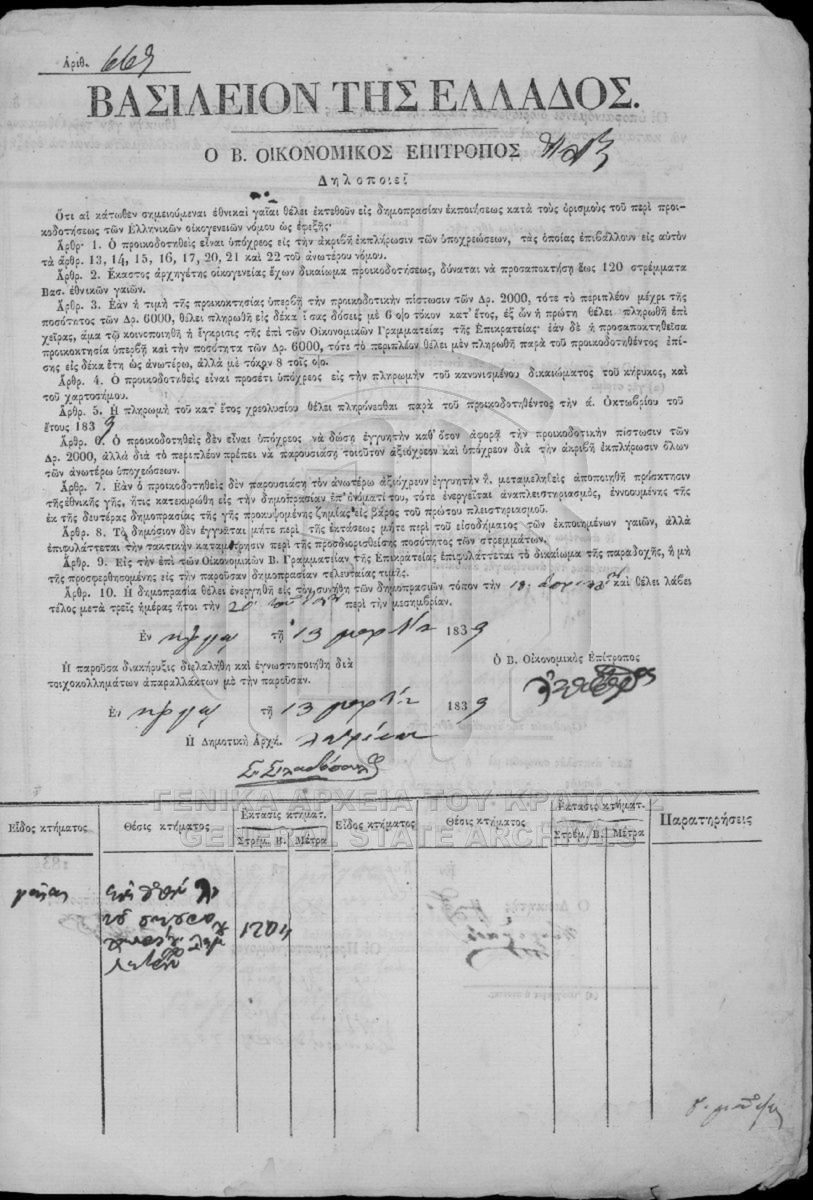 Ἀριθ. 669
ΒΑΣΙΛΕΙΟΝ ΤΗΣ ΕΛΛΑΔΟΣ.
Ο Β. ΟΙΚΟΝΟΜΙΚΟΣ ΕΠΙΤΡΟΠΟΣ
Δηλοποιεῖ
Ὅτι αἱ κάτωθεν σημειούμεναι ἐθνικαὶ γαῖαι θέλει ἐκτεθοῦν εἰς δημοπρασίαν ἐκποιήσεως κατὰ τοὺς ὁρισμοὺς τοῦ περὶ προι-
κοδοτήσεως τῶν Ἑλληνικῶν οἰκογενειῶν νόμου ὡς ἐφεξῆς·
Ἄρθρ. 1. Ὁ προικοδοτηθεὶς εἶναι ὑπόχρεος εἰς τὴν ἀκριβῆ ἐκπλήρωσιν τῶν ὑποχρεώσεων, τὰς ὁποίας ἐπιβάλλουν εἰς αὐτὸν
τὰ ἄρθρ. 13, 14, 15, 16, 17, 20, 21 καὶ 22 τοῦ ἀνωτέρω νόμου.
Ἄρθρ. 2. Ἕκαστος ἀρχηγέτης οἰκογενείας ἔχων δικαίωμα προικοδοτήσεως, δύναται νὰ προσαποκτήσῃ ἕως 120 στρέμματα
Βασ. ἐθνικῶν γαιῶν.
Ἄρθρ. 3. Ἐὰν ἡ τιμὴ τῆς προικοκτησίας ὑπερβῇ τὴν προικοδοτικὴν πίστωσιν τῶν Δρ. 2000, τότε τὸ περιπλέον μέχρι τῆς
ποσότητος τῶν Δρ. 6000, θέλει πληρωθῆ εἰς δέκα ἴσας δόσεις μὲ 6 ο]ο τόκον κατ' ἔτος, ἐξ ὧν ἡ πρώτη θέλει πληρωθῆ ἐπὶ
χεῖρας, ἅμα τῷ κοινοποιηθῇ ἡ ἔγκρισις τῆς ἐπὶ τῶν Οἰκονομικῶν Γραμματείας τῆς Ἐπικρατείας· ἐὰν δὲ ἡ προσαποκτηθεῖσα
προικοκτησία ὑπερβῇ καὶ τὴν ποσότητα τῶν Δρ. 6000, τότε τὸ περιπλέον θέλει μὲν πληρωθῆ παρὰ τοῦ προικοδοτηθέντος ἐπί-
σης εἰς δέκα ἔτη ὡς ἀνωτέρω, ἀλλὰ μὲ τόκον 8 τοῖς ο]ο.
Ἄρθρ. 4. Ὁ προικοδοτηθεὶς εἶναι προσέτι ὑπόχρεος εἰς τὴν πληρωμὴν τοῦ κανονισμένου δικαιώματος τοῦ κήρυκος, καὶ
τοῦ χαρτοσήμου.
Ἄρθρ. 5. Ἡ πληρωμὴ τοῦ κατ' ἔτος χρεολυσίου θέλει πληρόνεσθαι παρὰ τοῦ προικοδοτηθέντος τὴν ά. Ὀκτωβρίου τοῦ
ἔτους 1839
Ἄρθρ. 6. Ὁ προικοδοτηθεὶς δὲν εἶναι ὑπόχρεος νὰ δώσῃ ἐγγυητὴν καθ' ὅσον ἀφορᾷ τὴν προικοδοτικὴν πίστωσιν τῶν
Δρ. 2000, ἀλλὰ διὰ τὸ περιπλέον πρέπει νὰ παρουσιάσῃ τοιοῦτον ἀξιόχρεον καὶ ὑπόχρεον διὰ τὴν ἀκριβῆ ἐκπλήρωσιν ὅλων
τῶν ἀνωτέρω ὑποχεώσεων.
Ἄρθρ. 7. Ἐὰν ὁ προικοδοτηθεὶς δὲν παρουσιάσῃ τὸν ἀνωτέρω ἀξιόχρεον ἐγγυητὴν ἤ, μεταμεληθεὶς ἀποποιηθῇ πρόσκτησιν
τῆς ἐθνικῆς γῆς, ἥτις κατεκυρώθη εἰς τὴν δημοπρασίαν ἐπ' ὀνόματί του, τότε ἐνεργεῖται ἀναπλειστηριασμός, ἐννοουμένης τῆς
ἐκ τῆς δευτέρας δημοπρασίας τῆς γῆς προκυψομένης ζημίας εἰς βάρος τοῦ πρώτου πλειστηριασμοῦ.
Ἄρθρ. 8. Τὸ δημόσιον δὲν ἐγγυᾶται μήτε περὶ τῆς ἐκτάσεως μήτε περὶ τοῦ εἰσοδήματος τῶν ἐκποιημένων γαιῶν, ἀλλὰ
ἐπιφυλάττεται τὴν τακτικὴν καταμέτρησιν περὶ τῆς προσδιορισθείσης ποσότητος τῶν στρεμμάτων.
Ἄρθρ. 9. Εἰς τὴν ἐπὶ τῶν Οἰκονομικῶν Β. Γραμματείαν τῆς Ἐπικρατείας ἐπιφυλάττεται τὸ δικαίωμα τῆς παραδοχῆς, ἢ μὴ
τῆς προσφερθησομένης εἰς τὴν παροῦσαν δημοπρασίαν τελευταίας τιμῆς.
Ἄρθρ. 10. Ἡ δημοπρασία θέλει ἐνεργηθῆ εἰς τὸν συνήθη τῶν δημοπρασιῶν τόπον τὴν 18 καὶ θέλει λάβει
τέλος μετὰ τρεῖς ἡμέρας ἤτοι τὴν 20 περὶ τὴν μεσημβρίαν.
Ἐν τῇ 13 1839
Ἡ παροῦσα διακήρυξις διελαλήθη καὶ ἐγνωστοποιήθη διὰ
τοιχοκολλημάτων ἀπαραλλάκτων μὲ τὴν παροῦσαν.
Ὁ Β. Οἰκονομικὸς Ἐπίτροπος
Ἐν τῇ 13 1839
Ἡ Δημοτικὴ Ἀρχή.
ΓΕΝΙΚΑ ΑΡΧΕΙΑ ΤΟΥ ΚΡΑΤΟΥΣ
GENERAL STATE ARCHIVES
Εἶδος κτήματος Θέσις κτήματος Ἔκτασις κτήματ. Στρέμ. Β. Μέτρα Εἶδος κτήματος Θέσις κτήματος Ἔκτασις κτήματ. Στρέμ. Β. Μέτρα Παρατηρήσεις